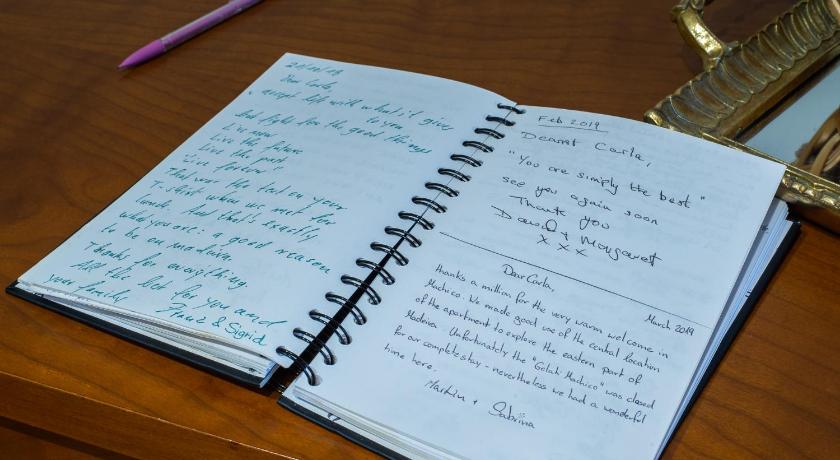 Dear Carla,
accept life with what it gives
to you
And fight for the good things
Live now
Live the future
Live the past
Live forever!
That was the text on your
T-shirt when we met for
lunch. And that's exactly
what you are: a good reason
to be on madeira.
Thanks for everything.
All the best for you and
your family
Franz & Sigrid
Feb 2019
Dearest Carla,
"You are simply the best"
see you again soon
Thank you
David + Margaret
x x x
March 2019
Dear Carla,
thanks a million for the very warm welcome in
Machico. We made good use of the central location
of the apartment to explore the eastern part of
Madeira. Unfortunately the "Gelati Machico" was closed
for our complete stay - nevertheless we had a wonderful
time here.
Martin + Sabrina